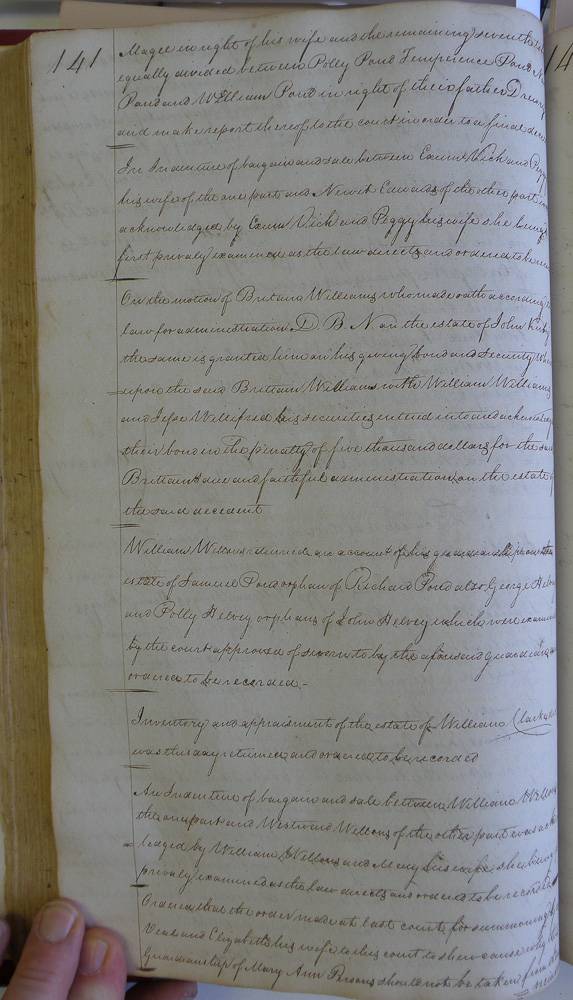 141
Magee in right of his wife and the remaining seventh to be
equally divided between Polly Pond Temperence Pond
Pond and William Pond in right of their father Drewry
and make report thereof to the court in order to a final decree
An Indenture of bargain and sale between Vick and Peggy
his wife of the one part and Newit Edwards of the other part was
acknowledged by Vick and Peggy his wife she being
first privaly examined as the law directs and ordered to be
On the motion of Britain Williams who made oath according to
law for administration D. B. N on the estate of John Kirby
the same is granted him on his giving bond and security Where
upon the said Brittain Williams with William Williams
and Jesse Wellifred his securities entered into and acknowledged
their bond in the penalty of five thousand dollars for the said
Brittains due and faithful administration on the estate of
the said decedent
William Wellons returned an account of his guardianship on the
estate of Samuel Pond orphan of Richard Pond also George Helvey
and Polly Helvey orphans of John Helvey which were examined
by the court approved of sworn to by the aforesaid guardian and
ordered to be recorded -
Inventory and appraisment of the estate of William
was this day returned and ordered to be recorded
An Indenture of bargain and sale between William Wellons
the one part and Westwood Wellons of the other part was acknow
ledged by William Wellons and Mary his wife she being
privaly examined as the law directs and ordered to be recorded
Ordered that the order made at last court for summoning
and Elizabeth his wife to this court to shew cause why
Guardianship of Mary Ann Persons should not be taken from